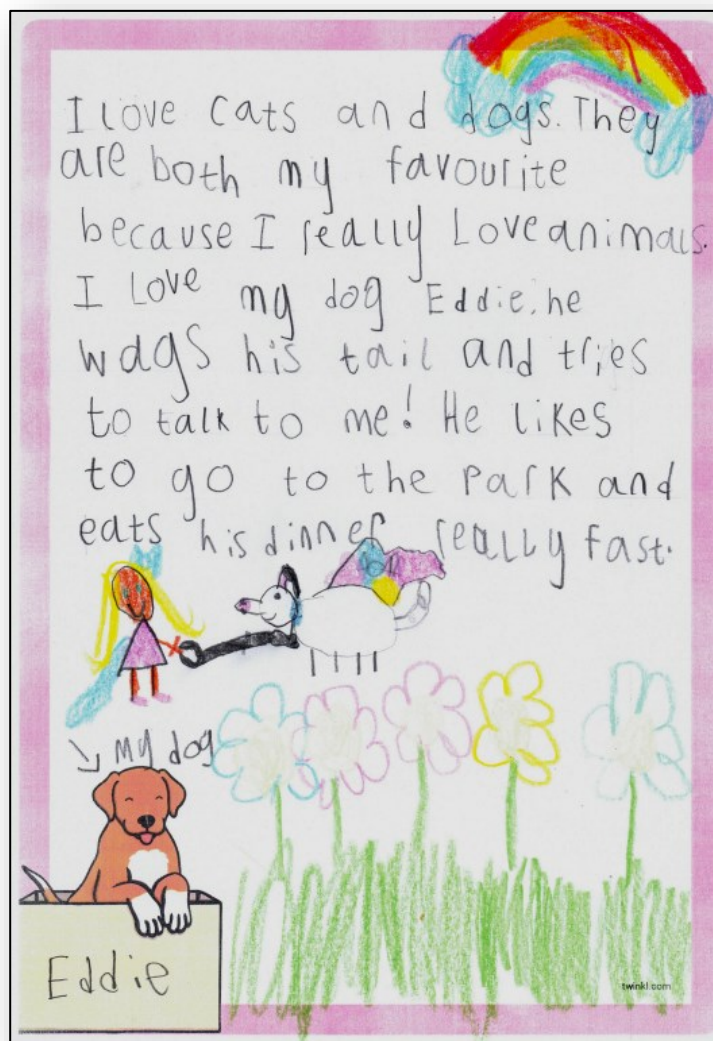 I love cats and dogs. They
are both my favourite
because I really Love animals.
I Love my dog Eddie. he
wags his tail and tries
to talk to me! He likes
to go to the park and
eats his dinner really fast.
my dog
Eddie
twinkl.com